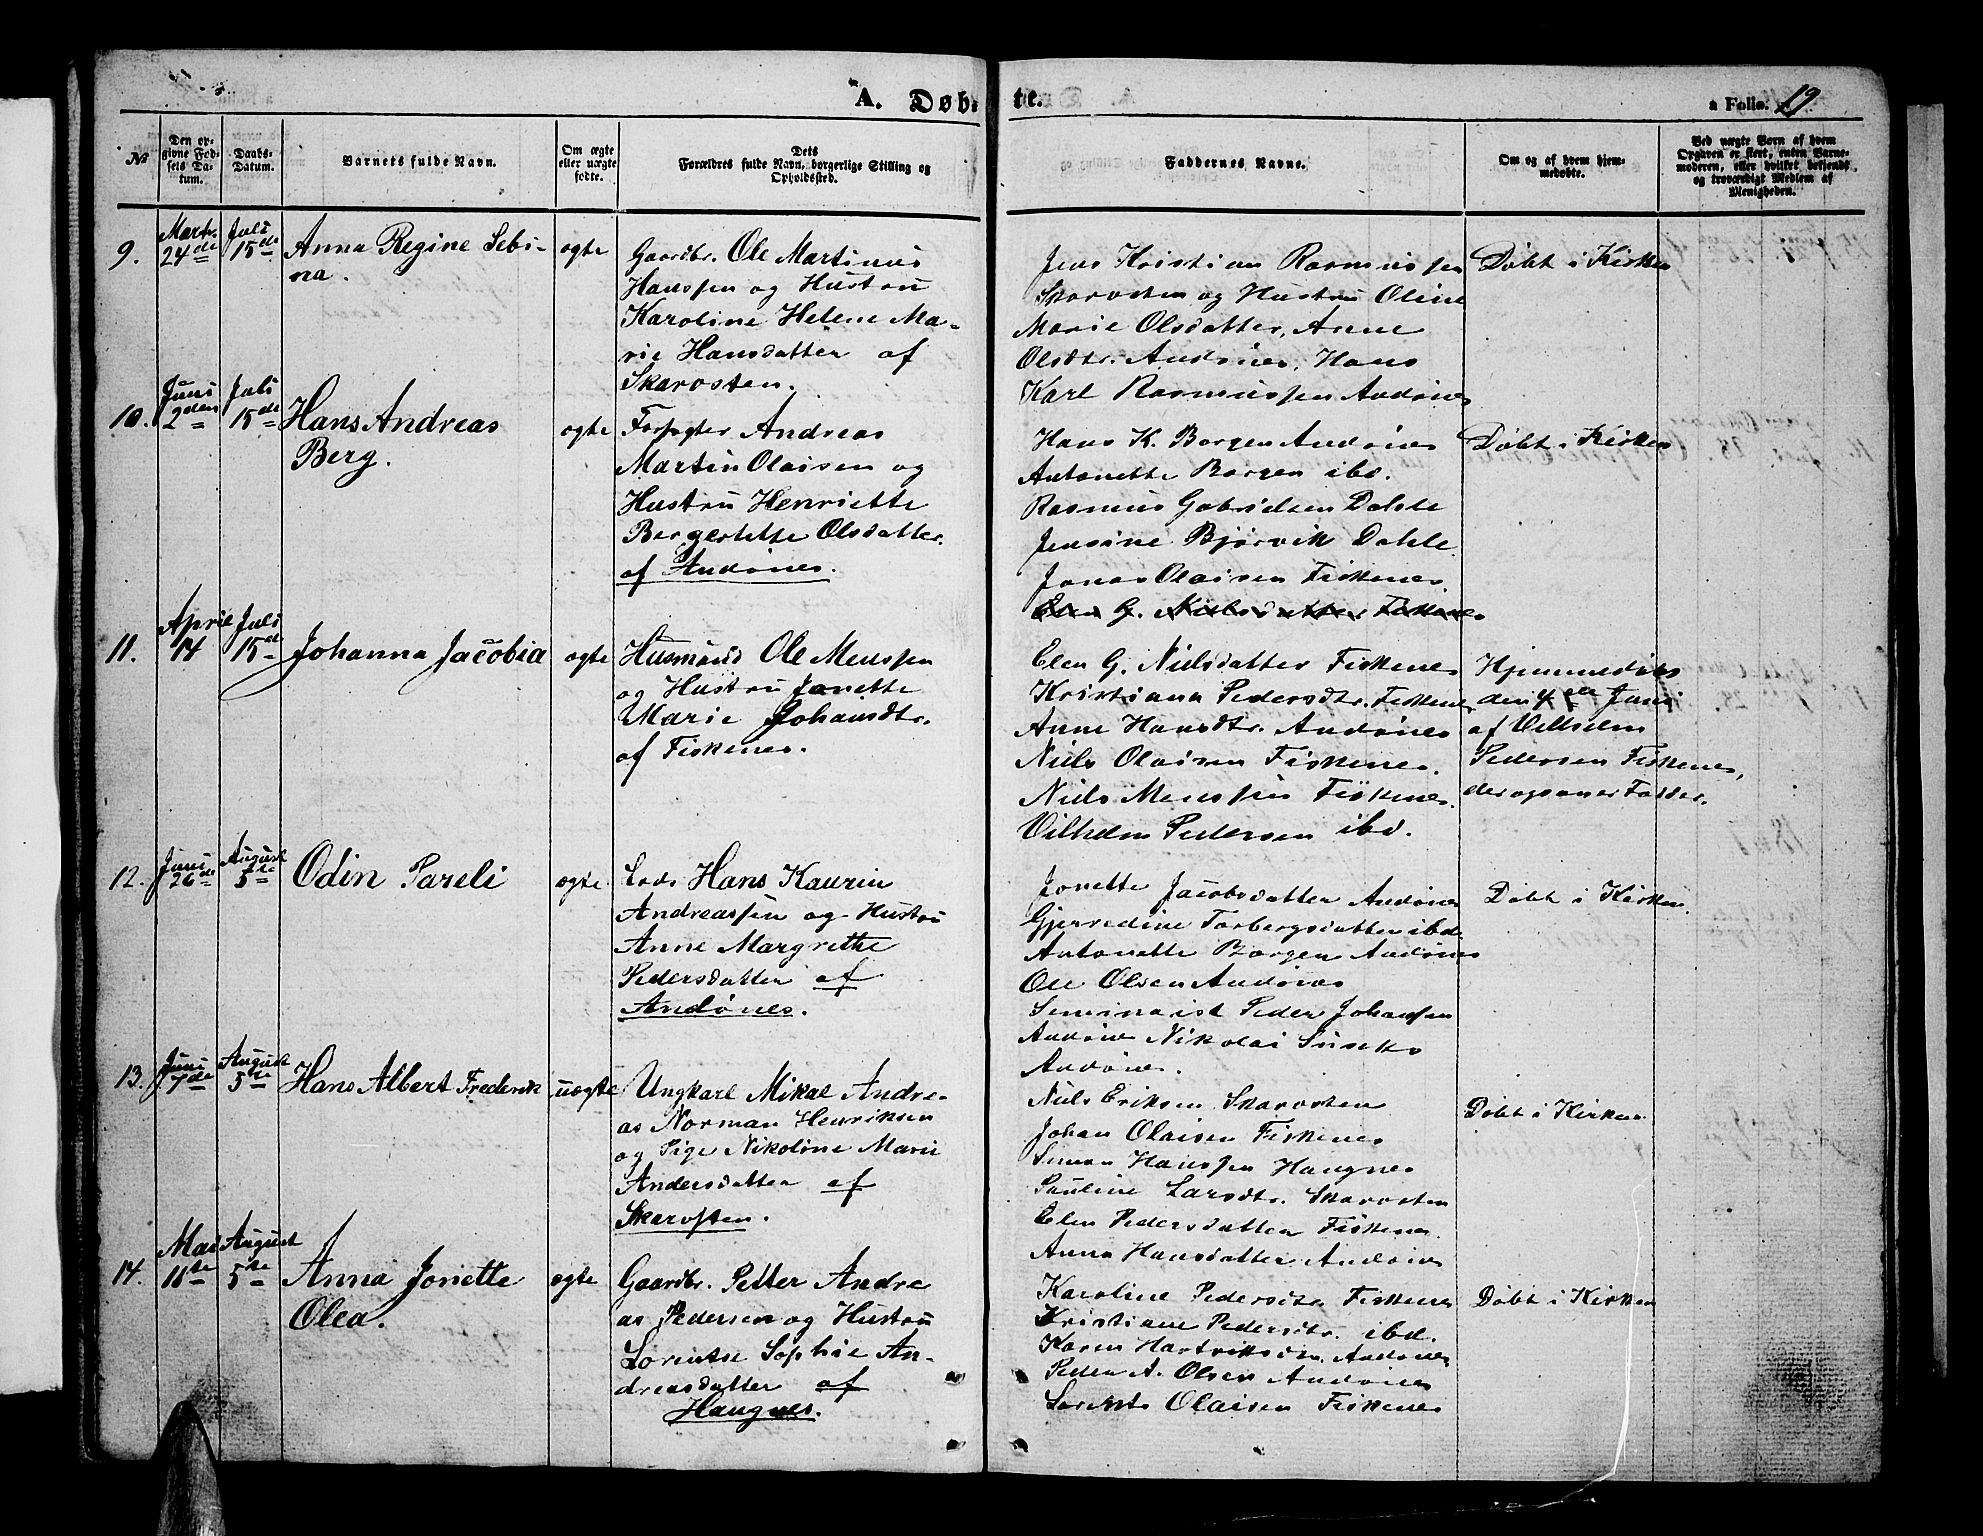 A. Døb-
te.
a Folio. 19
No
Den opgivne Fødsels Datum.
Daabs-Datum.
Barnets fulde Navn.
Om ægte eller uægte fødte.
Dets Forældres fulde Navn, borgerlige Stilling og Opholdssted.
Faddernes Navne.
Om og af hvem hjemmedøbte.
Ved uægte Børn af hvem Opgaven er skeet, enten Barnemoderen, eller hvilket bekjendt og troværdigt Medlem af Menigheden.
9.
Marts
24de
Juli
15de
Anna Regine Sebi-
na.
ægte
Gaardbr. Ole Martinus
Hanssen og Hustru
Karoline Helene Ma-
rie Hansdatter af
Skarvsten.
Jens Kristian Rasmussen
Skarvsten og Hustru Oline
Marie Olsdatter, Anne
Olsdtr. Andønes, Hans
Karl Rasmussen Andønes
Døbt i Kirken
10.
Juni
2den
Juli
15de
Hans Andreas
Berg.
ægte
Forpagter Andreas
Martin Olaisen og
Hustru Henriette
Bergestette Olsdatter
af Andønes.
Hans K. Borgen Andønes
Antonette Borgen ibd.
Rasmus Gabrielsen Dahle
Jensine Bjørvik Dahle
Jonas Olaisen Fiskenes
Elen G. Nielsdatter Fiskenes
Døbt i Kirken
11.
April
14
Juli
15de
Johanna Jacobia
ægte
Husmand Ole Menssen
og Hustru Janette
Marie Johansdtr.
af Fiskenes.
Elen G. Nielsdatter Fiskenes
Kristiana Pedersdtr. Fiskenes
Anne Hansdtr. Andønes
Niels Olaisen Fiskenes.
Niels Menssen Fiskenes.
Vilhelm Pedersen ibd.
Hjemmedøbt
den Juni
af Vilhelm
Pedersen Fiskenes,
der ogsaa er Fadder.
12.
Juni
26de
August
5te
Odin Pareli
ægte
Lods Hans Kaurin
Andreassen og Hustru
Anne Margrethe
Pedersdatter af
Andønes.
Jonette Jacobsdatter Andønes
Gjerredine Torbergsdatter ibd.
Antonette Borgen Andønes
Ole Olsen Andønes
Seminarist Peder Johansen
Andønes Nikolai
Andønes.
Døbt i Kirken.
13.
Juni
7de
August
5te
Hans Albert Frederik
uægte
Ungkarl Mikal Andre-
as Norman Henriksen
og Pige Nikoline Marie
Andersdatter af
Skarvsten.
Niels Eriksen Skarvsten
Johan Olaisen Fiskenes
Simon Hanssen Haugnes
Pauline Larsdtr. Skarvsten
Elen Pedersdatter Fiskenes.
Anna Hansdatter Andønes
Døbt i Kirken.
14.
Mai
16te
August
5te
Anna Jonette
Olea.
ægte
Gaardbr. Petter Andre
as Pedersen og Hustru
Lorentse Sophie An-
dreasdatter af
Haugnes.
Karoline Pedersdtr. Fiskenes
Kristiane Pedersdtr. ibd.
Karen Hartviksdtr. Andønes
Peder A. Olsen Andønes
Lorents Olaisen Fiskenes
Døbt i Kirken